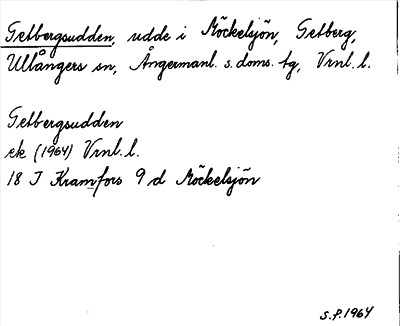 Getbergsudden, udde i Möckelsjön, Getberg,
Ullångers sn, Ångermanl. s. doms. tg, Vrnl. l.
Getbergsudden
ek (1964) Vrnl. l.
18 J Kramfors 9 d Möckelsjön
S.P. 1964